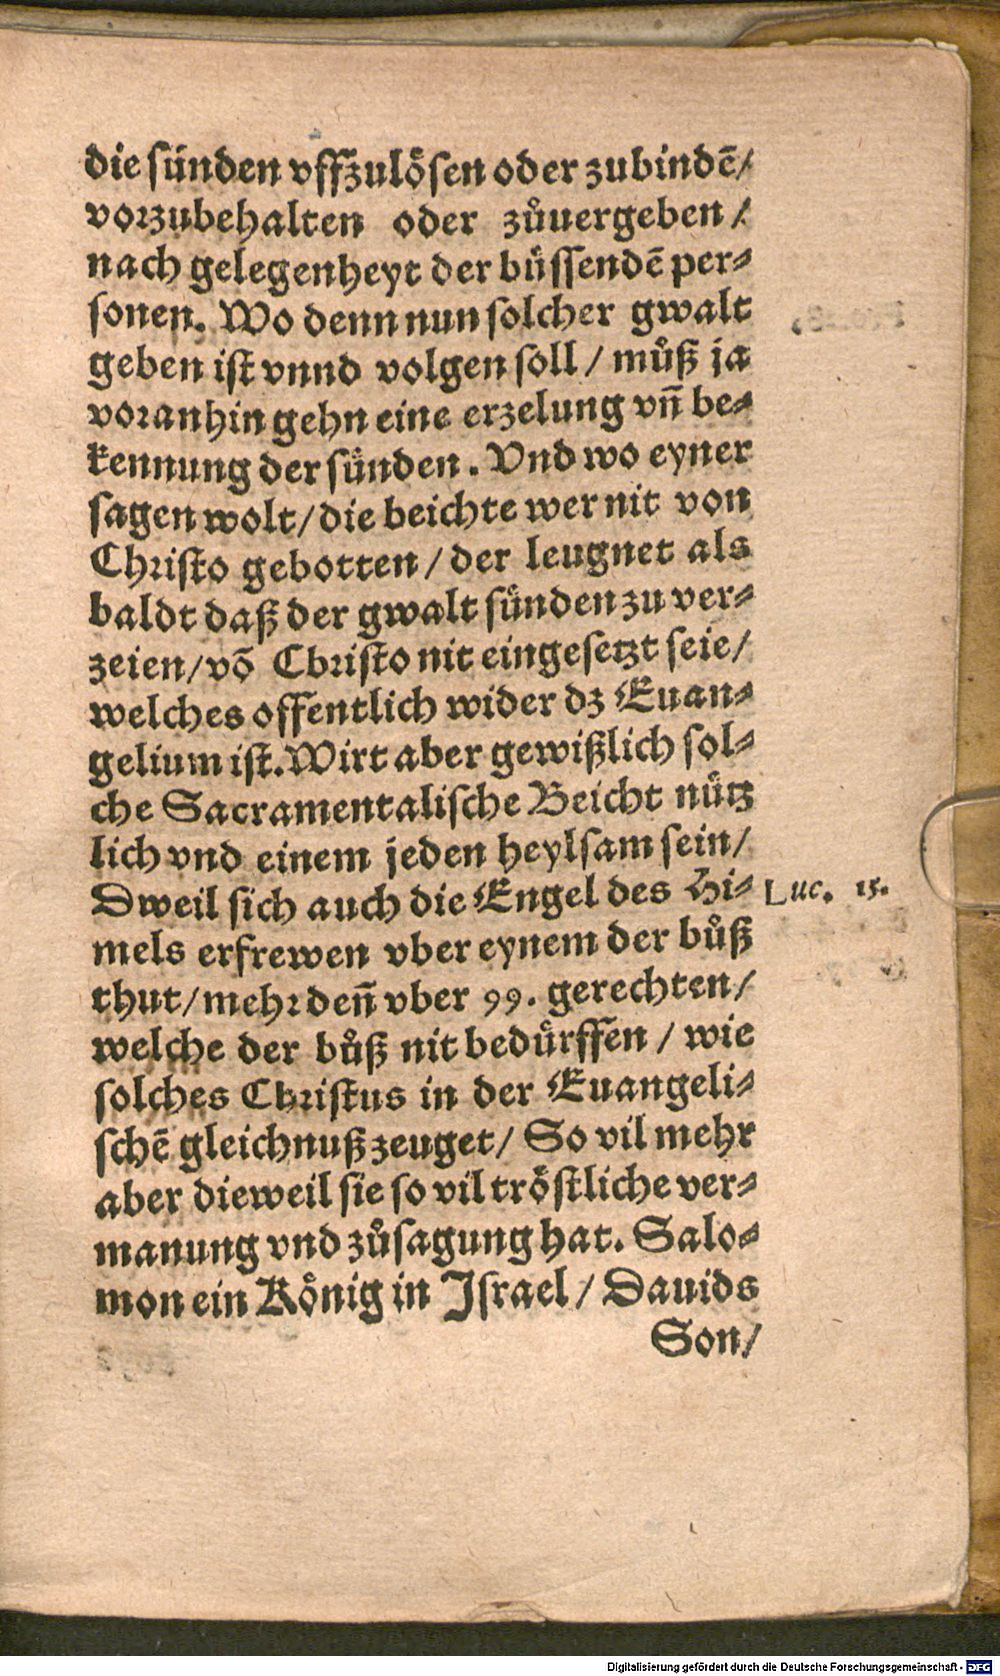 die sünden vffzulösen oder zubindẽ/
vorzubehalten oder zůuergeben/
nach gelegenheyt der büssendẽ per⸗
sonen. Wo denn nun solcher gwalt
geben ist vnnd volgen soll/ můß ja
voranhin gehn eine erzelung vñ be⸗
kennung der sünden. Vnd wo eyner
sagen wolt/die beichte wer nit von
Christo gebotten/der leugnet als
baldt daß der gwalt sünden zu ver⸗
zeien/võ Christo nit eingesetzt seie/
welches offentlich wider dz Euan⸗
gelium ist. Wirt aber gewißlich sol⸗
che Sacramentalische Beicht nütz
lich vnd einem jeden heylsam sein/
Dweil sich auch die Engel des Hi⸗ Luc. 15.
mels erfrewen vber eynem der bůß
thut/mehr deñ vber 99. gerechten/
welche der bůß nit bedürffen/ wie
solches Christus in der Euangeli⸗
schẽ gleichnuß zeuget/ So vil mehr
aber dieweil sie so vil tröstliche ver⸗
manung vnd zůsagung hat. Salo⸗
mon ein König in Israel/ Dauids
Son/
Digitalisierung gefördert durch die Deutsche Forschungsgemeinschaft - DFG